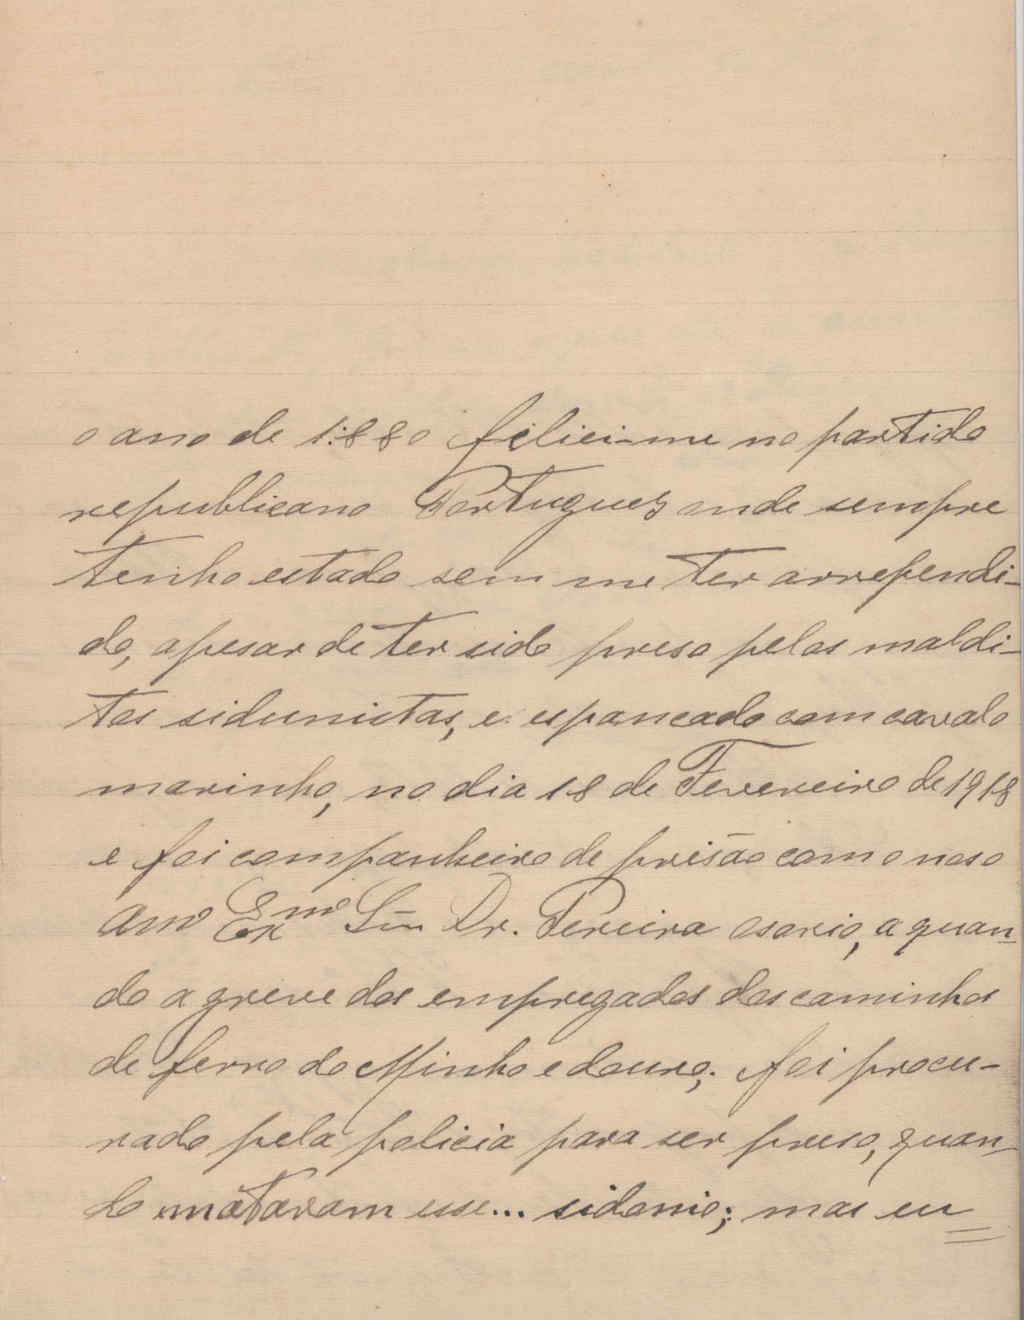 o ano de 1:880 feliciei-me no partido
republicano Portuguez onde sempre
tenho estado sem me ter arrependi-
do, apesar de ter sido preso pelos maldi-
tos sidunistas, e espancado com cavalo
marinho, no dia 18 de Fevereiro de 1918
e foi companheiro de prisão com o noso
Amº Exmº Snr Dr. Pereira osorio, a quan-
do a greve dos empregados dos caminhos
de ferro do Minho e douro; foi procu-
rado pela policia para ser preso, quan-
do mataram esse... sidonio; mas eu